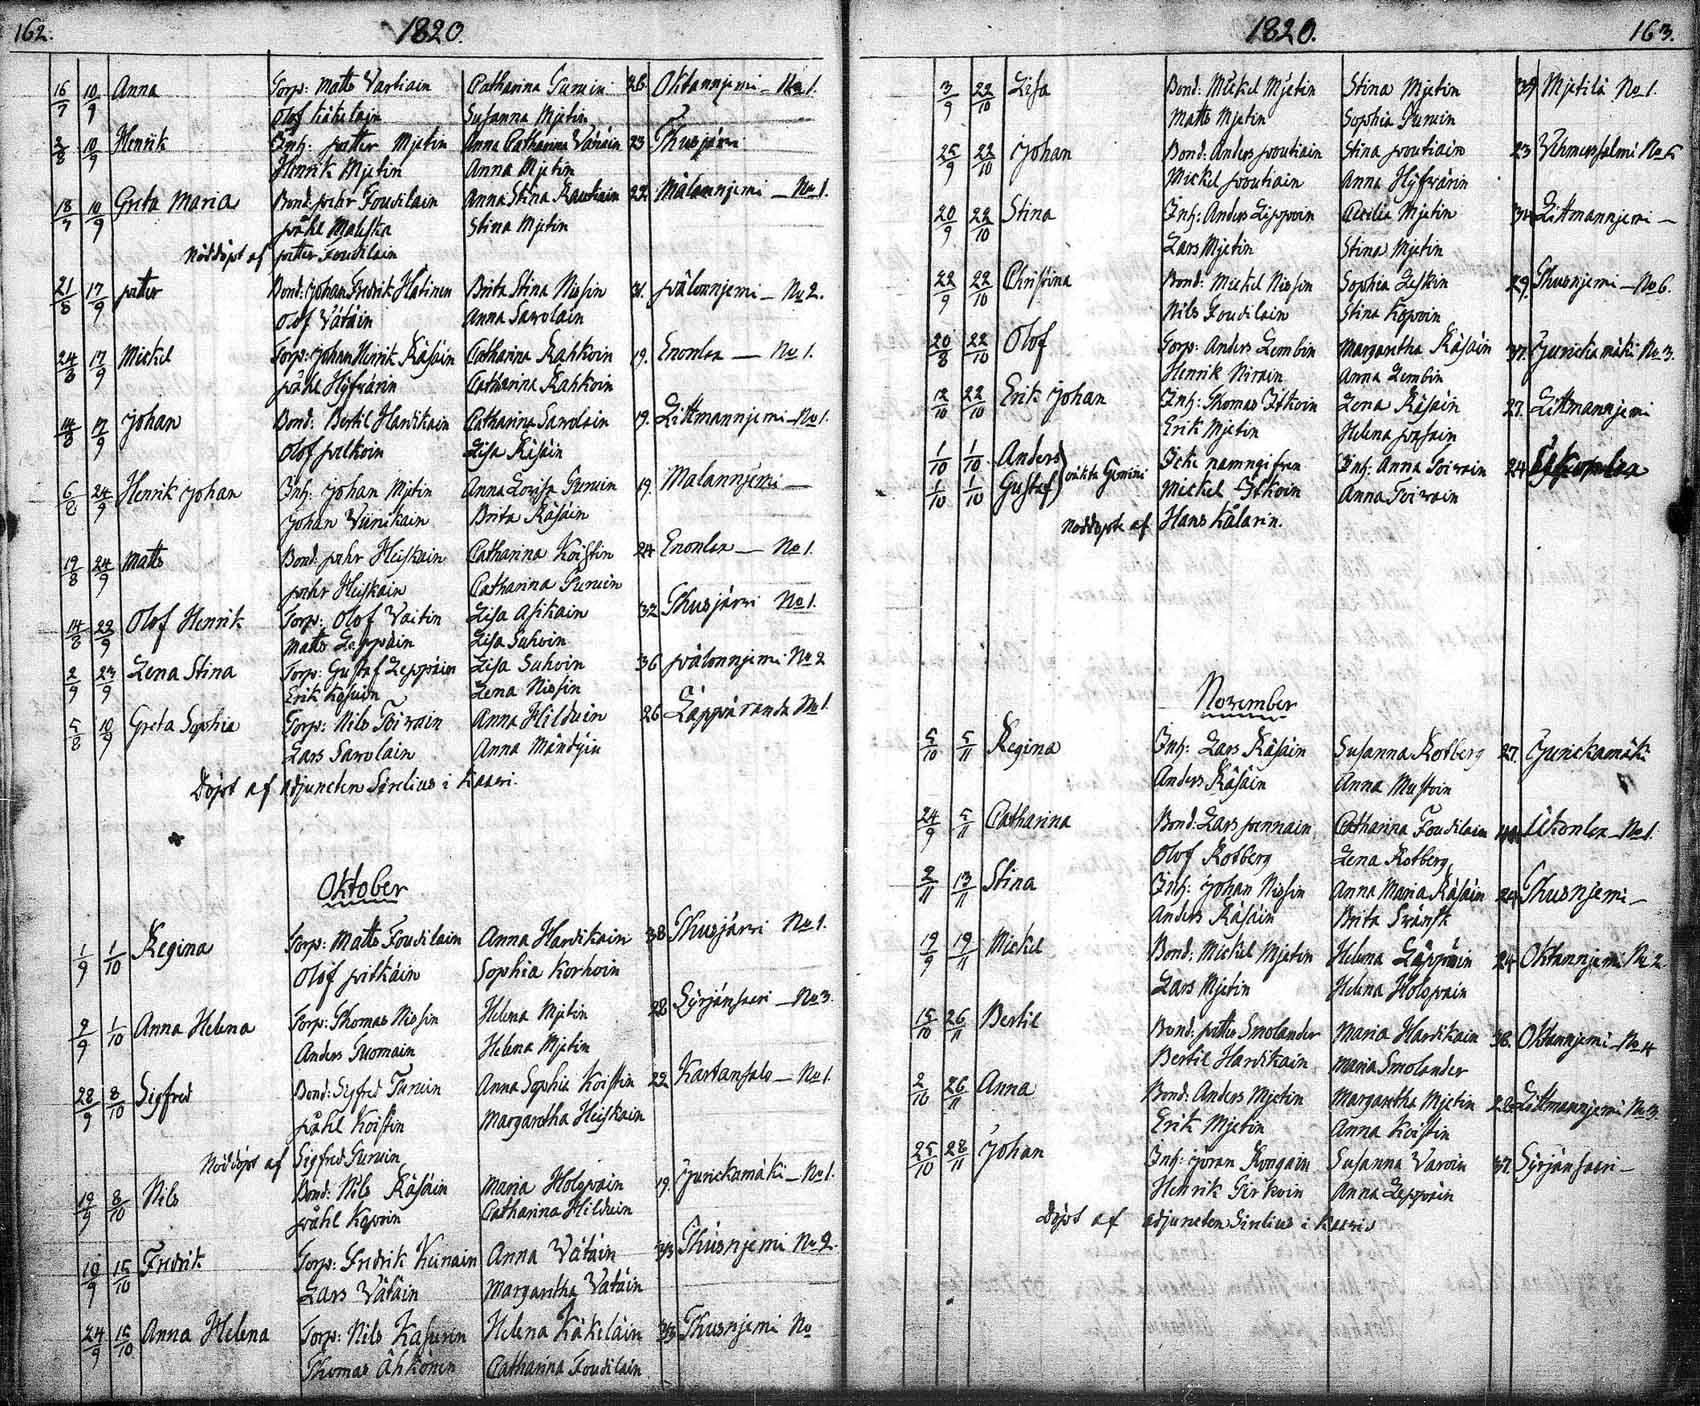 162. 1820.
16/7 10/9 Anna Torp: Matts Vartiain Catharina Turuin 26 Oktannjemi No 1.
Olof Käkelain Susanna Mjetin
2/8 10/9 Henrik Inh: petter Mjetin Anna Catharina Vätäin 23 Thusjärvi
Henrik Mjetin Anna Mjetin
18/7 10/9 Greta Maria Bond: pehr Toudilain Anna Stina Rautiain 22 Malannjemi – No 1.
påhl Maleska Stina Mjetin
Nöddöpt af petter Toudilain
21/8 17/9 petter Bond: Johan Fredrik Hatinen Brita Stina Nissin 31. pälonnjemi – No 2.
Olof Vätäin Anna Savolain
24/8 17/9 Mickel Torp: Johan Henrik Räsäin Catharina Kahkoin 19. Enonlax — No 1.
påhl Hyfvärin Catharina Kahkoin
14/8 17/9 Johan Bond: Bertil Hardikain Catharina Savolain 19. Littmannjemi – No 1.
Olof pelkoin Lisa Räsäin
6/8 24/9 Henrik Johan Inh: Johan Mjetin Anna Lovisa Turuin 19. Malannjemi —
Johan Väinikain Brita Räsäin
19/8 24/9 Matts Bond: pehr Heiskain Catharina Koistin 24 Enonlax — No 1.
pehr Heiskain Catharina Turuin
14/8 22/9 Olof Henrik Torp: Olof Vaitin Lisa Asikain 32 Thusjärvi No 1.
Matts Leppäin Lisa Suhoin
2/9 23/9 Lena Stina Torp: Gustaf Leppäin Lisa Suhoin 36 pälonnjemi No 2
Erik Kosuin Lena Nissin
5/8 10/9 Greta Sophia Torp: Nils Toivain Anna Hilduin 26 Läppäranda No 1.
Lars Savolain Anna Mändyin
Döpt af adjuncten Sirelius i Kaavi.
Oktober
1/9 1/10 Regina Torp: Matts Toudilain Anna Hardikain 38 Thusjärvi No 1.
Olof pitkäin Sophia Korhoin
9/9 1/10 Anna Helena Torp: Thomas Nissin Helena Mjetin 28 Syrjänsari – No 3.
Anders Tuomain Helena Mjetin
28/9 8/10 Sigfred Bond: Sigfred Turuin Anna Sophia Koistin 22 Kartansalo – No 1.
påhl Koistin Margaretha Heiskain
Nöddöpt af Sigfred Turuin
19/9 8/10 Nils Bond: Nils Räsäin Maria Holopain 19. Jurickamäki – No 1.
påhl Kopoin Catharina Hilduin
10/9 15/10 Fredrik Torp: Fredrik Keinain Anna Vätäin 33 Thusnjemi No 2.
Lars Vätäin Margaretha Vätäin
24/9 15/10 Anna Helena Torp: Nils Kasurin Helena Käkeläin 33 Thusnjemi No
Thomas Ahkonen Catharina Toudilain
1820. 163.
3/9 22/10 Lisa Bond: Mickel Mjetin Stina Mjetin 39 Mjetilä No 1.
Matts Mjetin Sophia Turuin
25/9 22/10 Johan Bond: Anders poutiain Stina poutiain 23 Vehmersalmi No 5
Mickel poutiain Anna Hyfvärin
20/9 22/10 Stina Inh: Anders Lippoin Cecilia Mjetin 34 Littmannjemi –
Lars Mjetin Stina Mjetin
22/9 22/10 Christina Bond: Mickel Nissin Sophia Leskin 29. Thusnjemi – No 6.
Nils Toudilain Stina Kopoin
20/8 22/10 Olof Torp: Anders Lembin Margaretha Räsäin 37. Jurickamäki No 3.
Henrik Nivain Anna Lembin
12/10 22/10 Erik Johan Inh: Thomas Itkoin Lena Räsäin 27. Littmannjemi
Erik Mjetin Helena passain
1/10 1/10 Anders Icke namngifven Inh: Anna Toivain 24
1/10 1/10 Gustaf oäkta Gemini Mickel Itkoin Anna Toivain
Nöddöpte af Hans Kålarin.
November
5/10 5/11 Regina Inh: Lars Räsäin Susanna Rotberg 27. Jurickamäki
Anders Räsäin Anna Mustoin
24/9 5/11 Catharina Bond: Lars pennain Catharina Toudilain Ukonlax – No 1.
Olof Rotberg Lena Rotberg
2/11 13/11 Stina Inh: Johan Nissin Anna Maria Räsäin 24 Thusnjemi –
Anders Räsäin Brita Svänsk
19/9 19/11 Mickel Bond: Mickel Mjetin Helena Läppäin 24 Oktannjemi No 2.
Lars Mjetin Helena Holopain
15/10 26/11 Bertil Bond: petter Smolander Maria Hardikain 38. Oktannjemi – No 4
Bertil Hardikain Maria Smolander
2/10 26/11 Anna Bond: Anders Mjetin Margaretha Mjetin 28 Littmannjemi No 3.
Erik Mjetin Anna Koistin
25/10 28/11 Johan Inh: Jöran Rongain Susanna Varoin 37. Syrjänsari –
Henrik Tirkoin Anna Leppäin
Döpt af adjuncten Sirelius i Kaavi